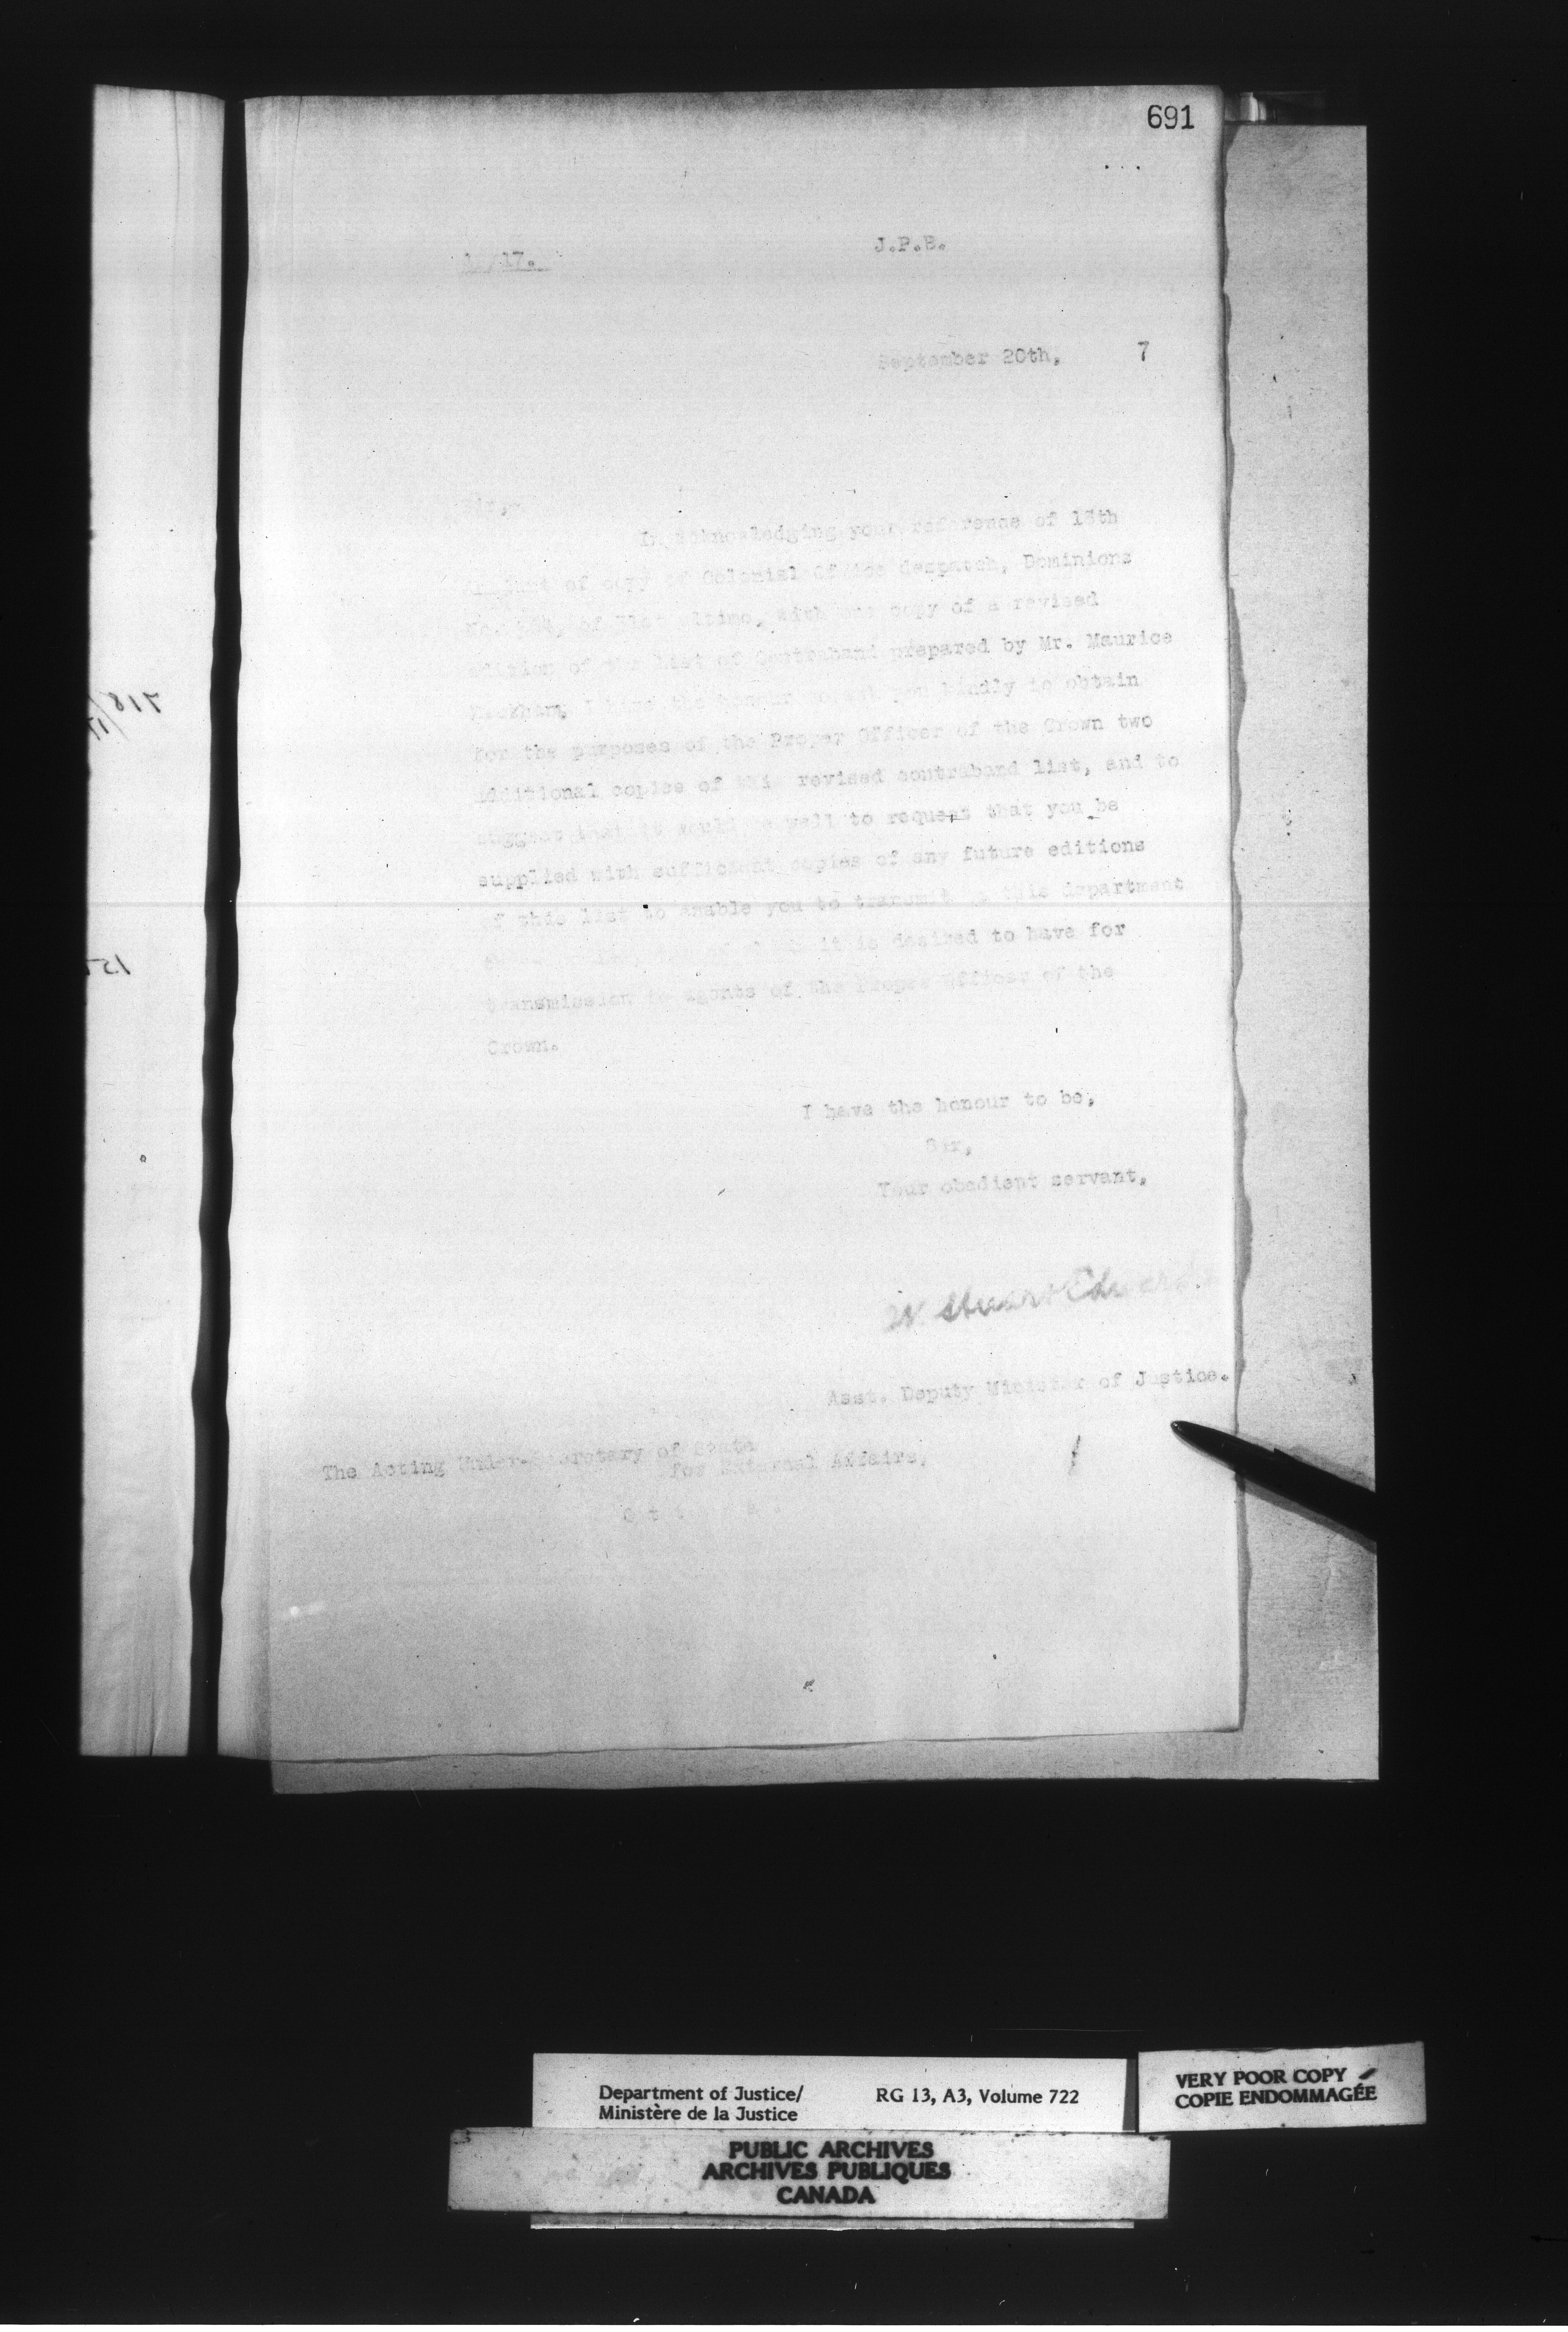 691
J.P.B.
17.
September 20th, 7
Sir,-
In acknowledging your reference of 18th
of copy of Colonial Office despatch, Dominions
No. of ultimo, with one copy of a revised
edition of the List of Contraband prepared by Mr. Maurice
I have the honour you kindly to obtain
for the purposes of the Proper Officer of the Crown two
additional copies of this revised contraband list, and to
suggest that it would be well to request that you be
supplied with sufficient copies of any future editions
of this list to enable you to transmit to this department
it is desired to have for
transmission to agents of the Proper Officer of the
Crown.
I have the honour to be,
Sir,
Your obedient servant,
W. Stuart Edwards
Asst. Deputy Minister of Justice.
The Acting Under-Secretary of State
for External Affairs,
Department of Justice/
Ministère de la Justice
RG 13, A3, Volume 722
VERY POOR COPY
COPIE ENDOMMAGÉE
PUBLIC ARCHIVES
ARCHIVES PUBLIQUES
CANADA